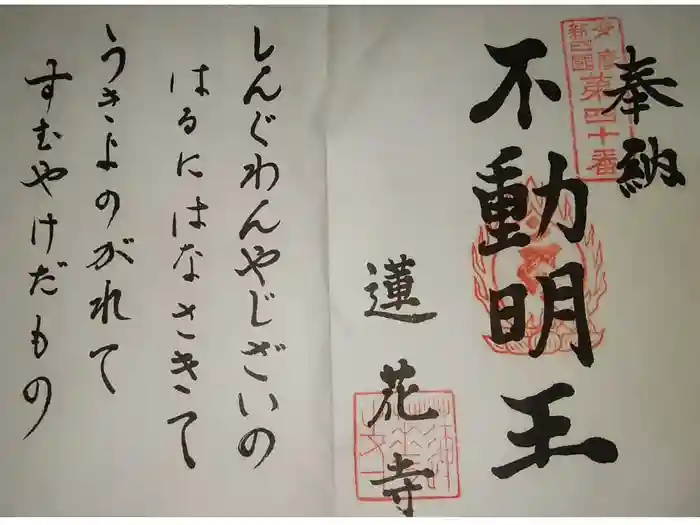 奉納
新四国
第四十番
不動明王
蓮花寺
しんぐわんやじざいの
はるにはなさきて
うきよのがれて
すむやけだもの